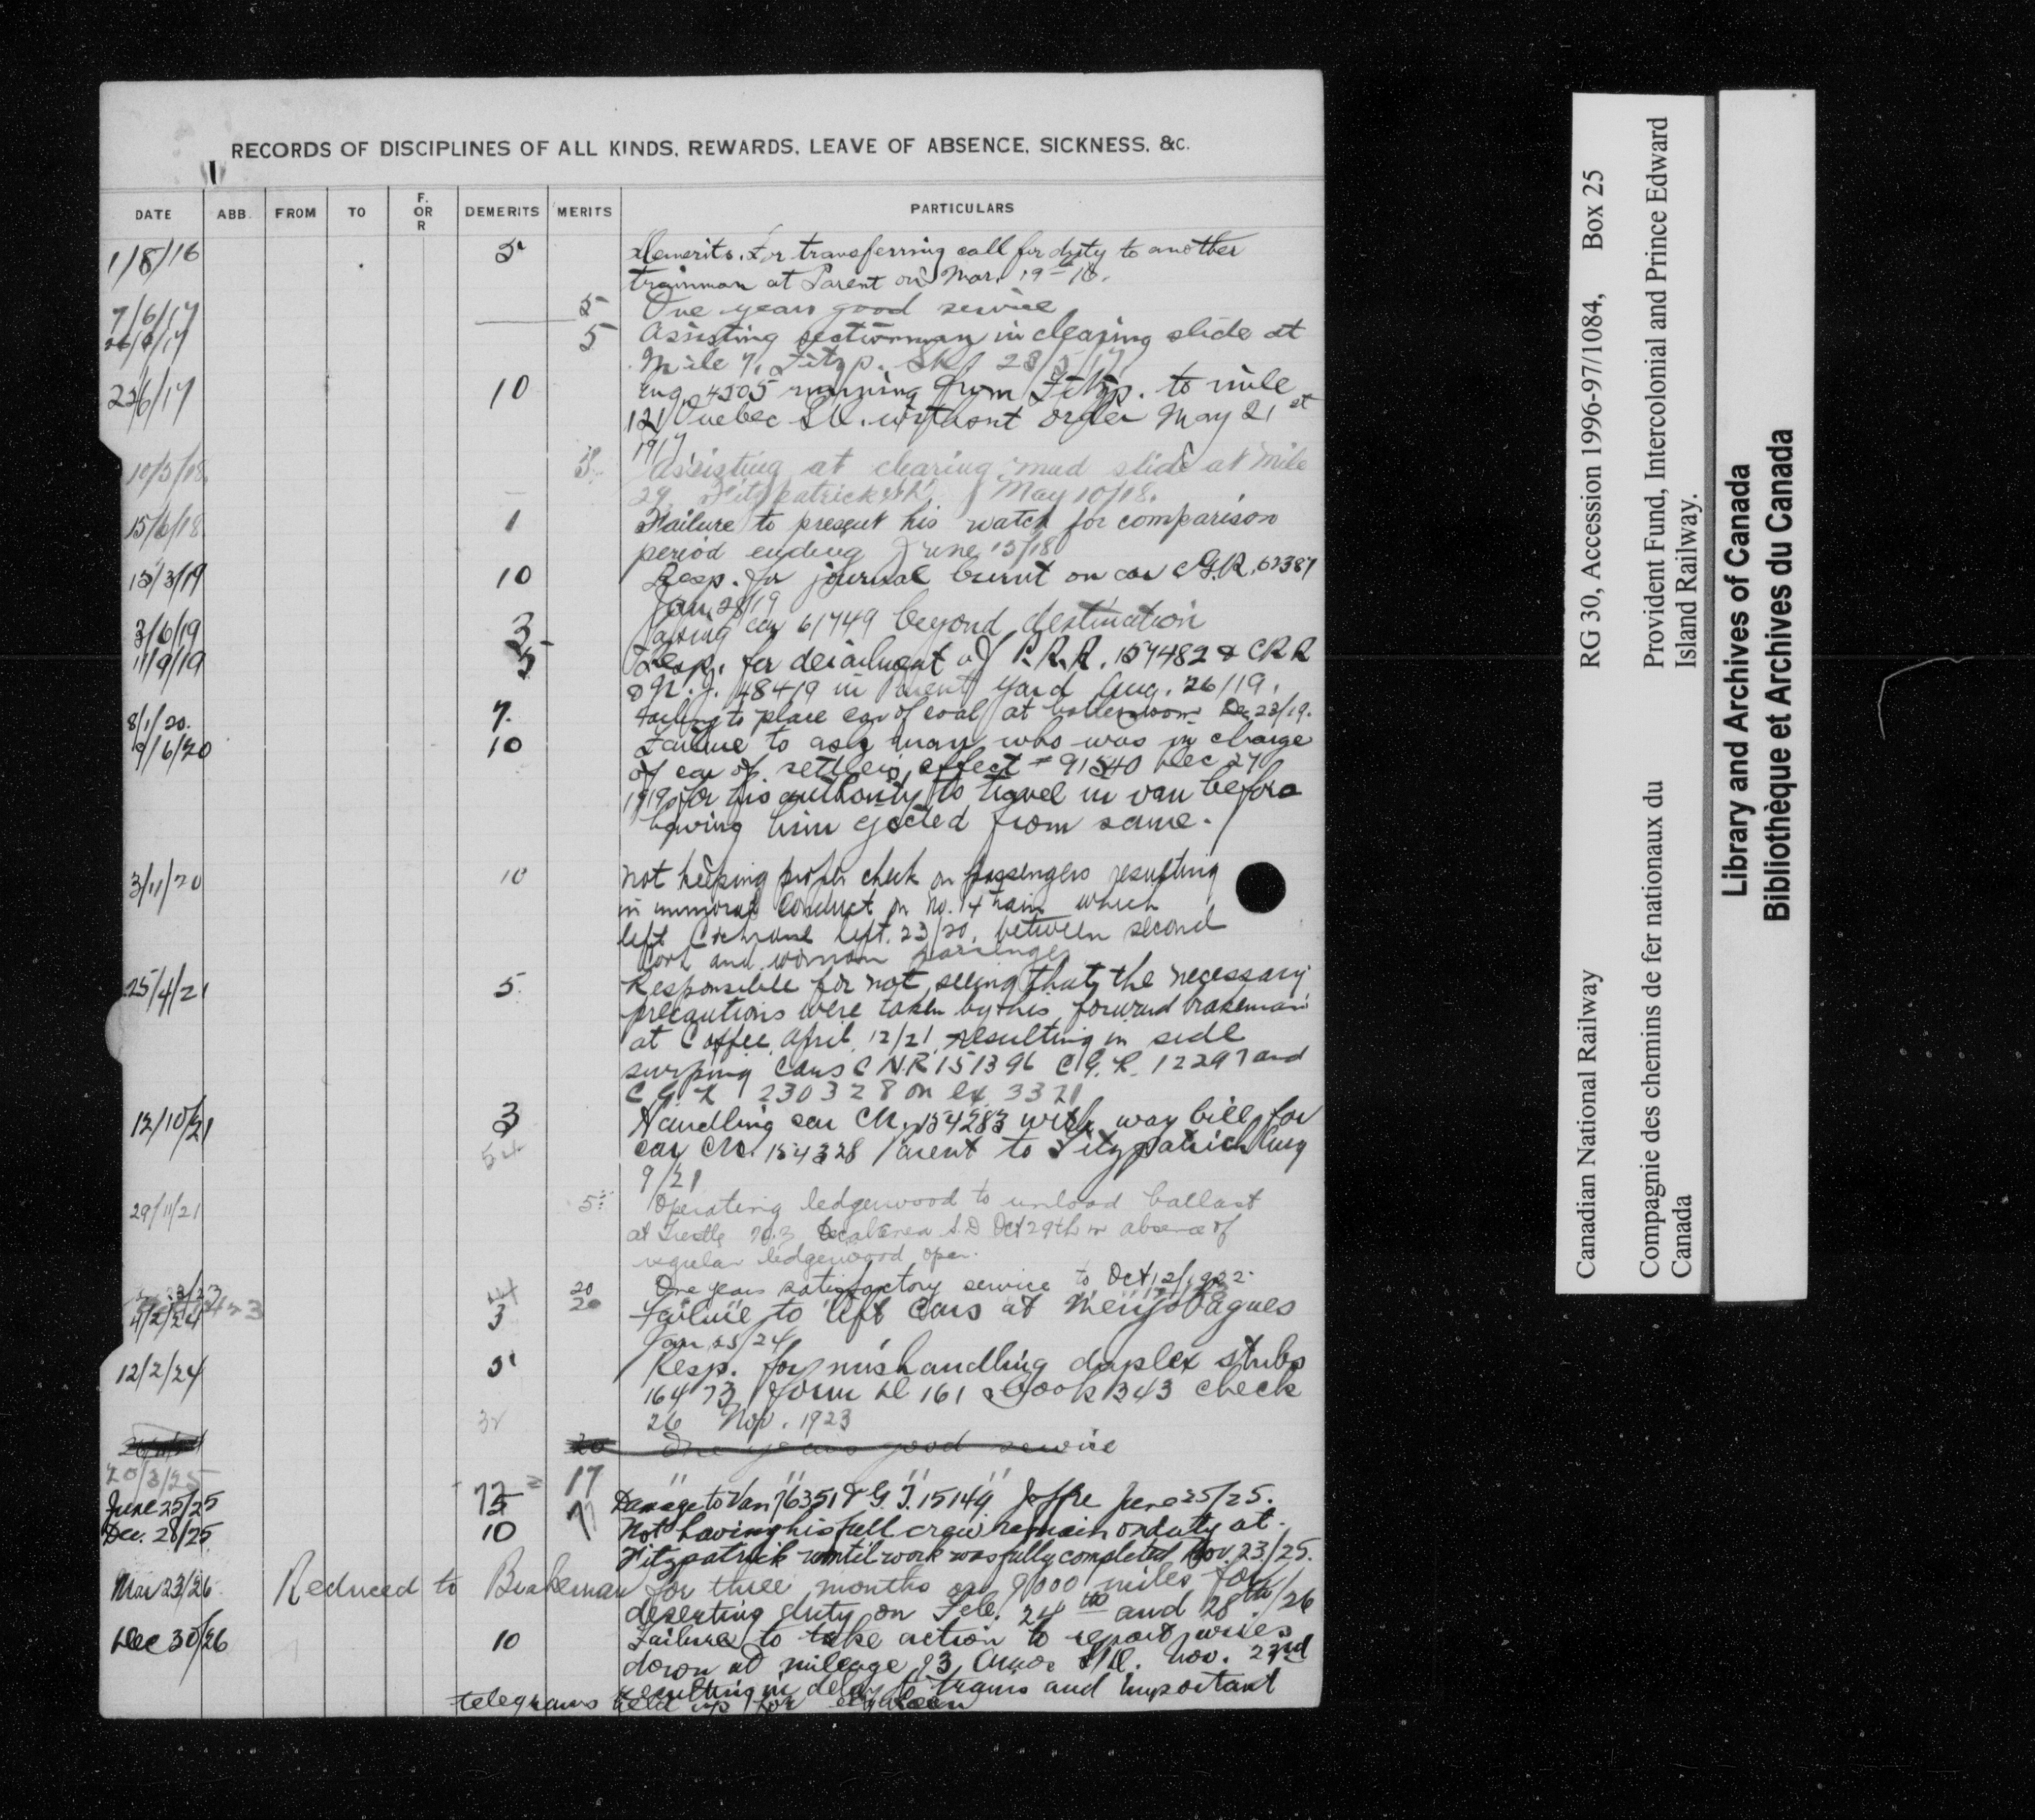 RECORDS OF DISCIPLINES OF ALL KINDS, REWARDS, LEAVE OF ABSENCE, SICKNESS, &c.
DATE ABB. FROM TO F. OR R DEMERITS MERITS PARTICULARS
1/8/16 5 Demerits. For transferring call for duty to another
trainman at Parent on Mar. 19-16.
7/6/17 5 One years good service
5 Assisting sectionman in clearing slide at
Mile 7, Fitzp. 28/5/17
23/6/17 10 Eng. 4305 running from Fitzp. to mile
121 Quebec without order May 21st
1917
10/5/18 5 Assisting at clearing mud slide at Mile
29 Fitzpatrick May 10/18.
15/6/18 1 Failure to present his watch for comparison
period ending June 15/18
15/3/19 10 Resp. for journal burnt on car C.G.R. 62387
Jan. 28/19
3/6/19 3 Taking car 61749 beyond destination
11/9/19 5 Resp. for derailment of P.R.R. 157482 & C R R
of N.J. 48419 in Parent yard Aug. 26/19.
8/1/20. 7. Failing to place car of coal at Dec 23/19.
9/6/20 10 Failure to ask man who was in charge
of car of settlers effect # 91540 Dec 27
1919 for his authority to travel in van before
having him ejected from same.
3/11/20 10 Not keeping proper check on passengers resulting
in immoral conduct on No. 14 train which
left Cochrane Sept. 23/20, between second
cook and woman passenger
25/4/21 5 Responsible for not seeing that the necessary
precautions were taken by his forward brakeman
at Coffee April 12/21 resulting in side
swiping cars C N.R 151396 C.G.R. 12297 and
C G R 230328 on ex. 3321
12/10/21 3 Handling car CN. 154283 with way bill for
54 car CN. 154328 Parent to Fitzpatrick Aug
9/21
29/11/21 5 Operating ledgerwood to unload ballast
at Trestle Oct 29th in absence of
regular ledgerwood oper.
20 One years satisfactory service to Oct 12/1922
4/2/24 3 20 Failure to lift cars at Menjobagues
Jan 25/24
12/2/24 5 Resp. for mishandling duplex stubs
16473 form 161 Book 1343 check
32 26 Nov. 1923
20 One years good service
20/3/25 17 " " " "
June 25/25 5 Damage to Van 76351 & G.T. 15149 Joffre June 25/25.
Dec. 28/25 10 Not having his full crew remain on duty at
Fitzpatrick until work was fully completed Nov. 23/25.
Mar 23/26 Reduced to Brakeman for three months or 9000 miles for
deserting duty on Feb. 24th and 28th/26
Dec 30/26 10 Failure to take action to report wires
down at mileage 93 Amos S/D. Nov. 23rd
resulting in delay to trains and important
telegrams held up for
Canadian National Railway RG 30, Accession 1996-97/1084, Box 25
Compagnie des chemins de fer nationaux du Canada
Provident Fund, Intercolonial and Prince Edward Island Railway.
Library and Archives of Canada
Bibliothèque et Archives du Canada